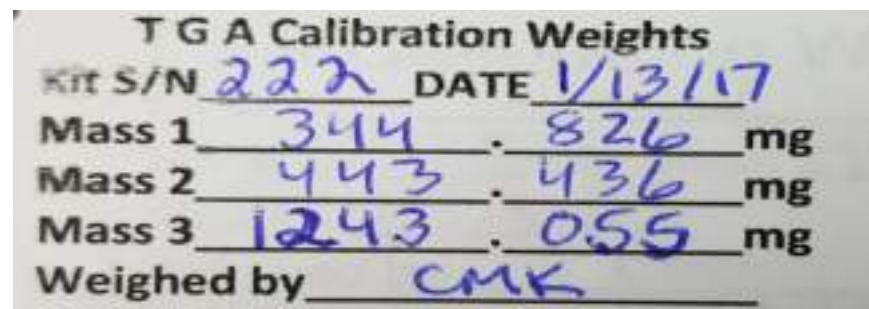 T G A Calibration Weights
Kit S/N 222 DATE 1/13/17
Mass 1 344 . 826 mg
Mass 2 443 . 436 mg
Mass 3 1243 . 055 mg
Weighed by CMK